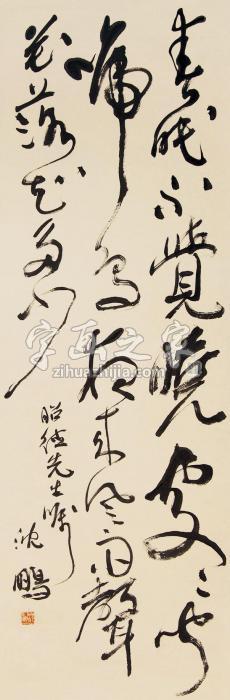 春眠不覺曉處〻聞
啼鳥夜來風雨聲
花落知多少
先生嘱
沈鵬
字画之家
zihuazhijia.com